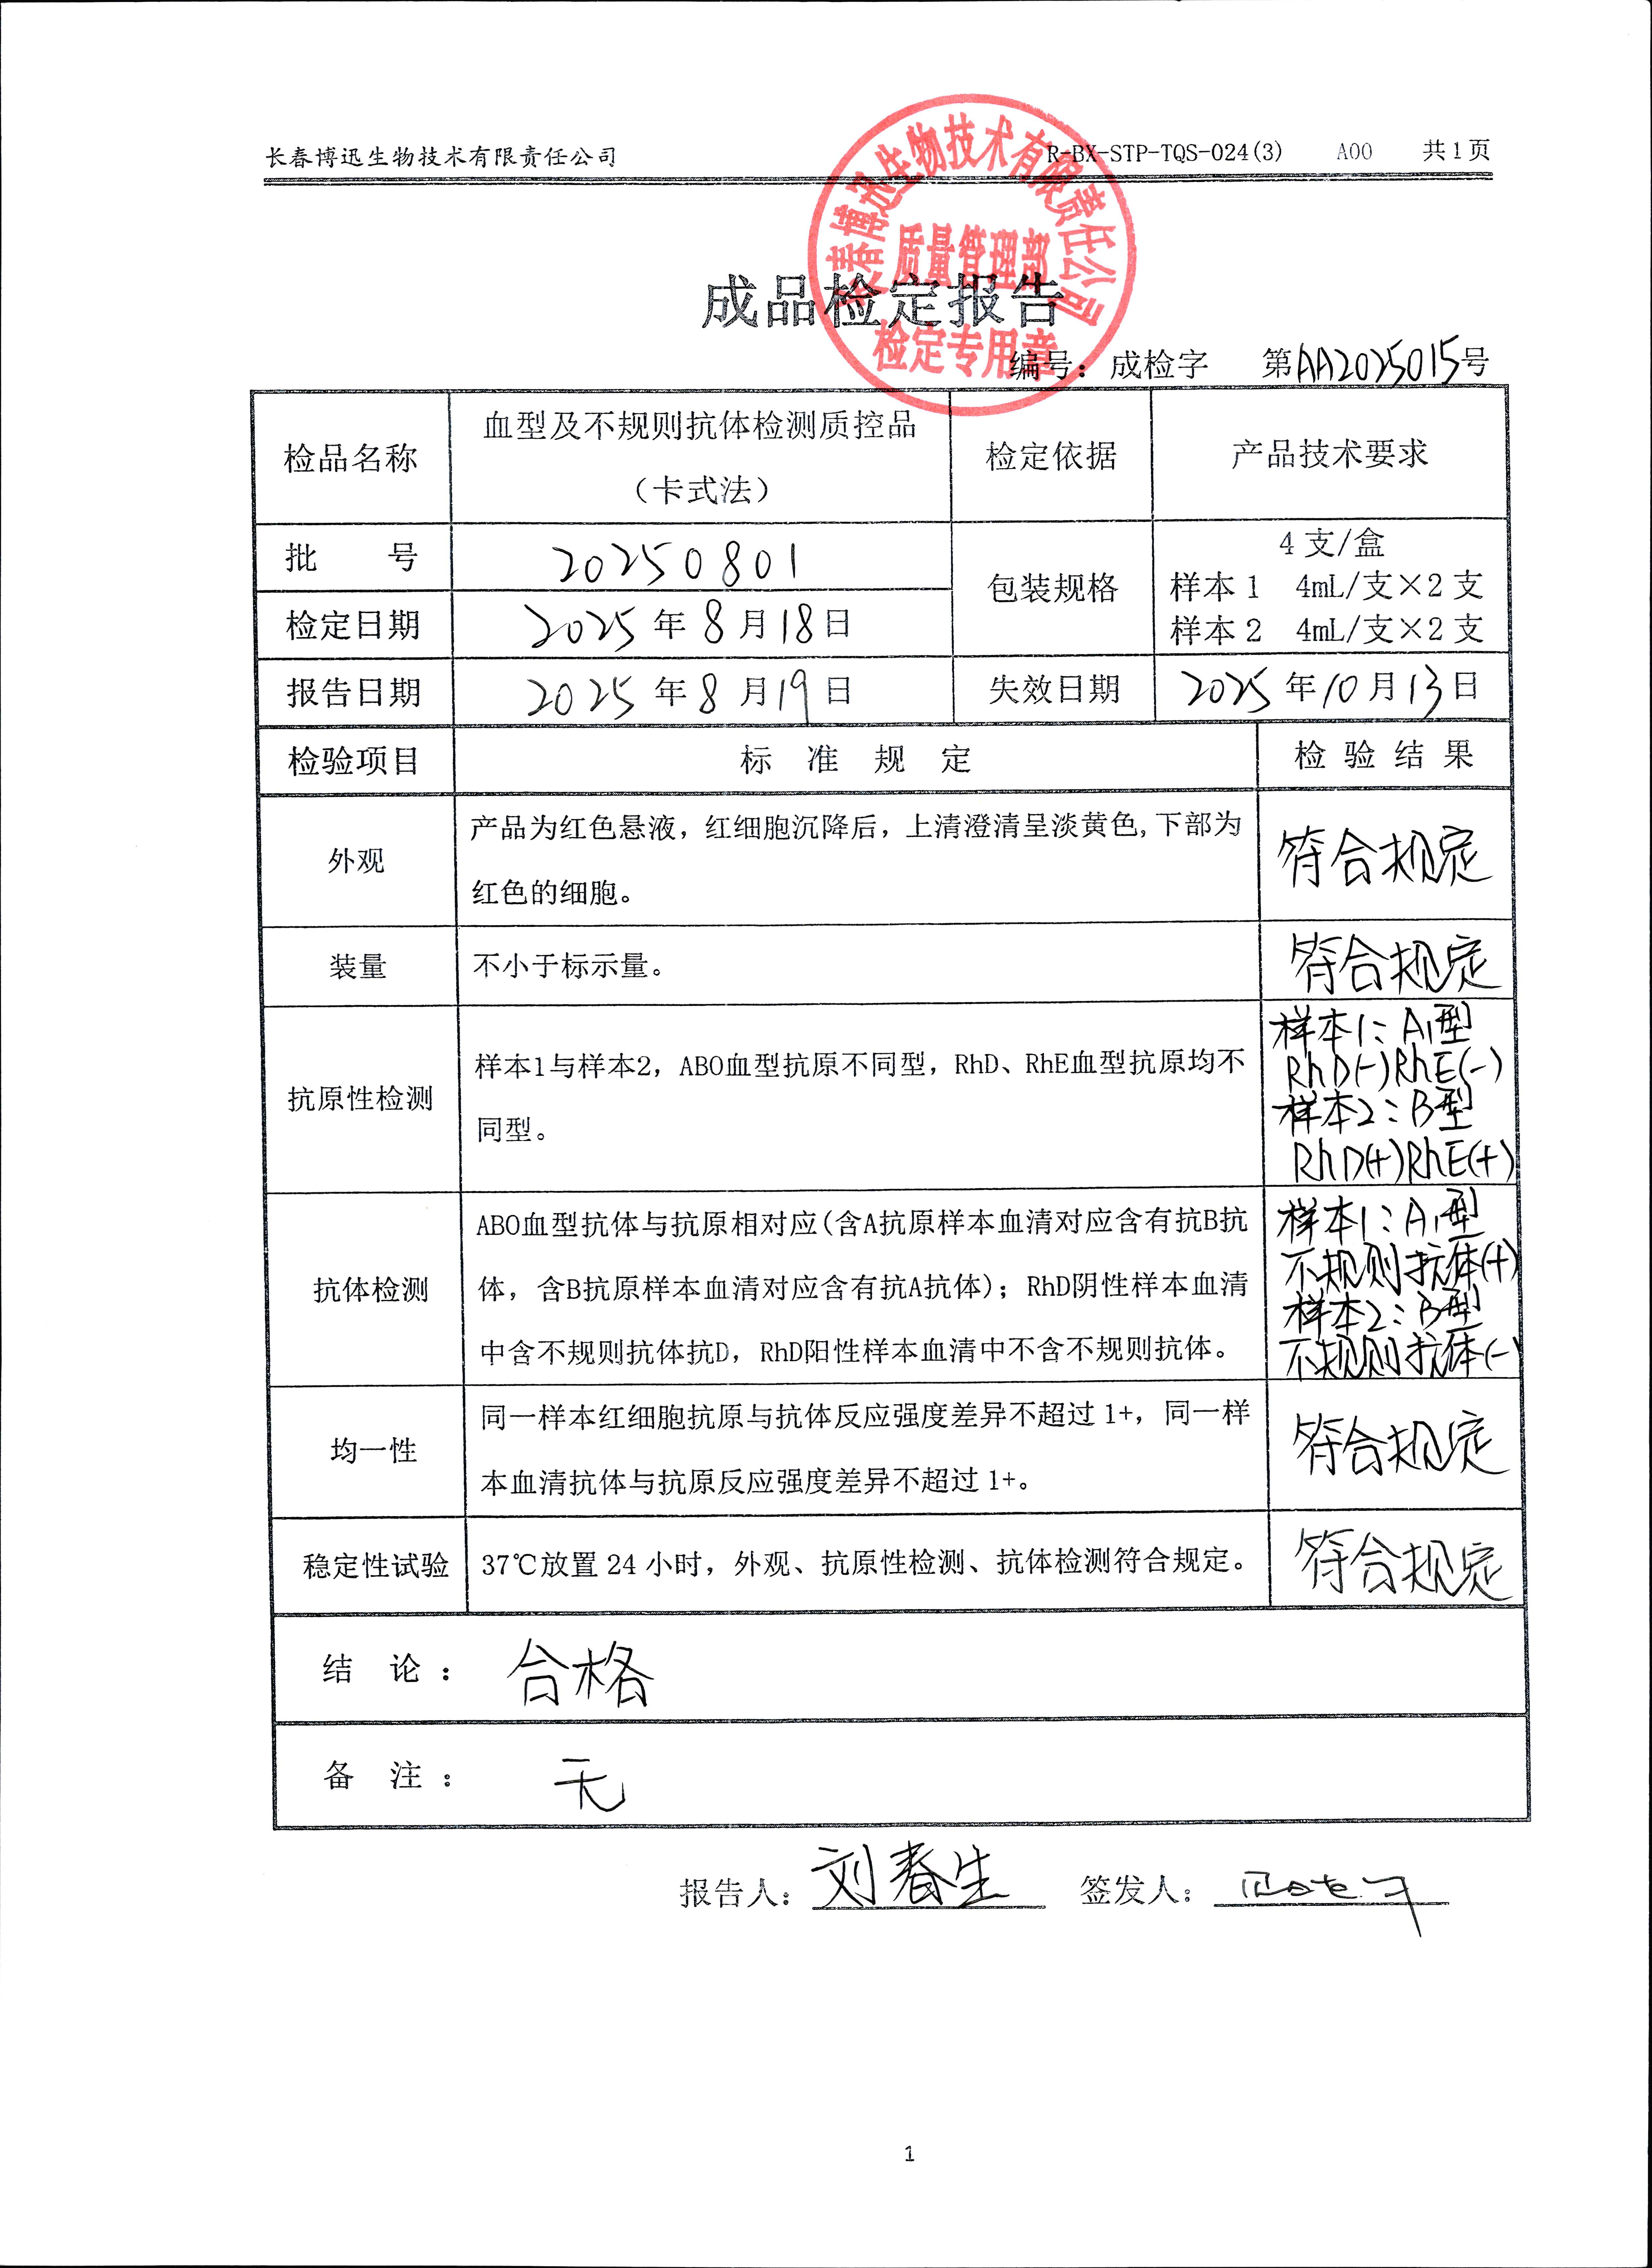 长春博迅生物技术有限责任公司 R-BX-STP-TQS-024(3) A00 共1页
长春博迅生物技术有限责任公司
质量管理部
检定专用章
成品检定报告
编号：成检字 第AA2025015号
检品名称 血型及不规则抗体检测质控品 检定依据 产品技术要求
（卡式法）
批 号 20250801 包装规格 4支/盒
样本1 4mL/支×2支
检定日期 2025年8月18日 样本2 4mL/支×2支
报告日期 2025年8月19日 失效日期 2025年10月13日
检验项目 标准规定 检验结果
外观 产品为红色悬液，红细胞沉降后，上清澄清呈淡黄色,下部为 符合规定
红色的细胞。
装量 不小于标示量。 符合规定
抗原性检测 样本1与样本2，ABO血型抗原不同型，RhD、RhE血型抗原均不
同型。
样本1：A1型
RhD(-)RhE(-)
样本2：B型
RhD(+)RhE(+)
抗体检测 ABO血型抗体与抗原相对应(含A抗原样本血清对应含有抗B抗
体，含B抗原样本血清对应含有抗A抗体)；RhD阴性样本血清
中含不规则抗体抗D，RhD阳性样本血清中不含不规则抗体。
样本1：A1型
不规则抗体(+)
样本2：B型
不规则抗体(-)
均一性 同一样本红细胞抗原与抗体反应强度差异不超过1+，同一样 符合规定
本血清抗体与抗原反应强度差异不超过1+。
稳定性试验 37℃放置24小时，外观、抗原性检测、抗体检测符合规定。 符合规定
结 论： 合格
备 注： 无
报告人：刘春生 签发人：
1